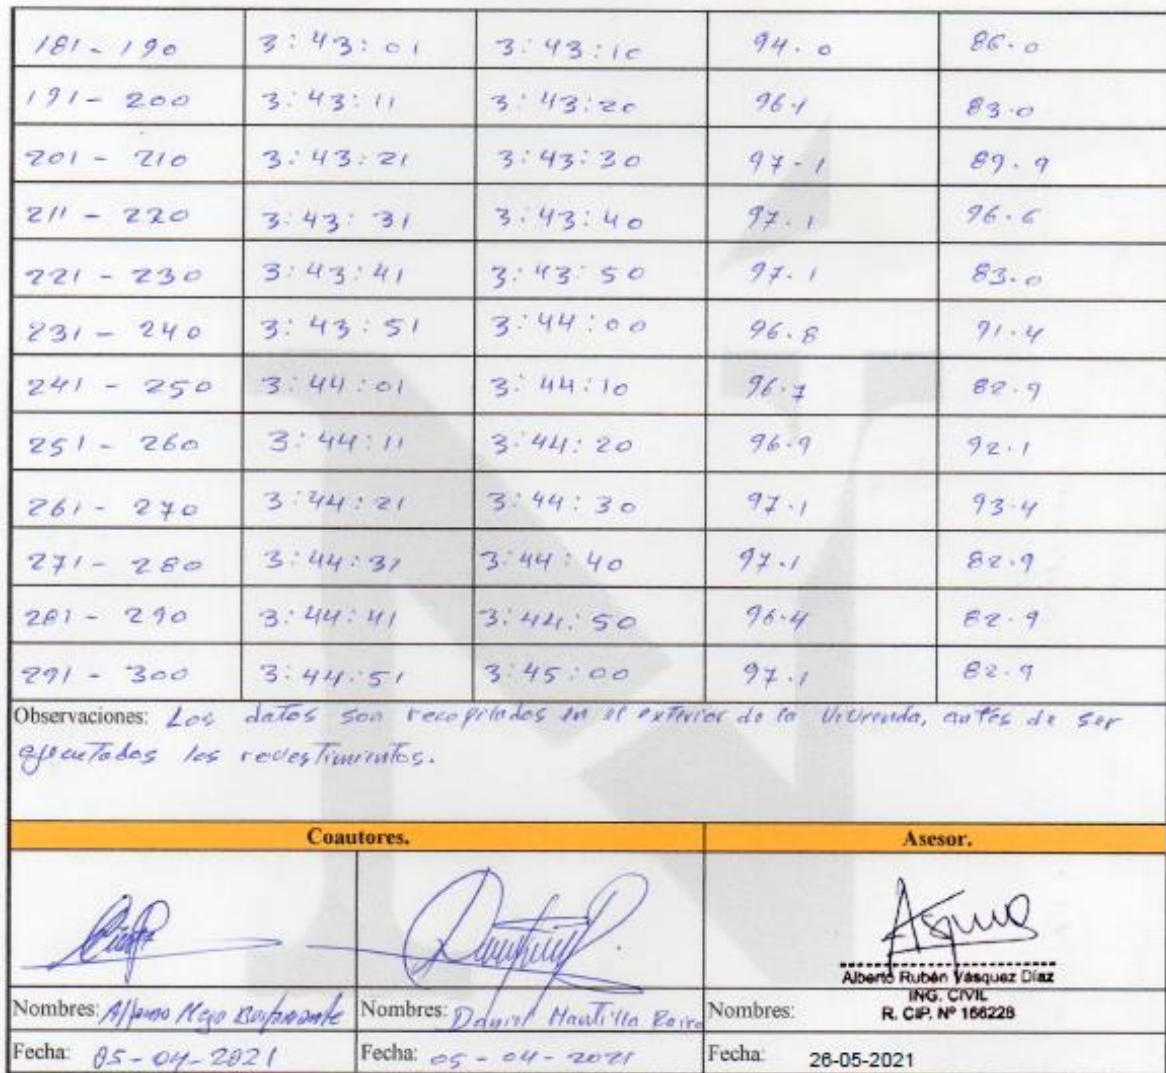 181 - 190 3:43:01 3:43:10 94.0 86.0
191 - 200 3:43:11 3:43:20 96.1 83.0
201 - 210 3:43:21 3:43:30 97.1 89.9
211 - 220 3:43:31 3:43:40 97.1 96.6
221 - 230 3:43:41 3:43:50 97.1 83.0
231 - 240 3:43:51 3:44:00 96.8 91.4
241 - 250 3:44:01 3:44:10 96.7 82.9
251 - 260 3:44:11 3:44:20 96.9 92.1
261 - 270 3:44:21 3:44:30 97.1 93.4
271 - 280 3:44:31 3:44:40 97.1 82.9
281 - 290 3:44:41 3:44:50 96.4 82.9
291 - 300 3:44:51 3:45:00 97.1 82.9
Observaciones: Los datos son recopilados en el exterior de la vivienda, antes de ser
ejecutados los revestimientos.
Coautores. Asesor.
Alberto Rubén Vásquez Díaz
ING. CIVIL
R. CIP. Nº 166228
Nombres: Nombres: Daniel Mantilla Nombres:
Fecha: 05-04-2021 Fecha: 05-04-2021 Fecha: 26-05-2021